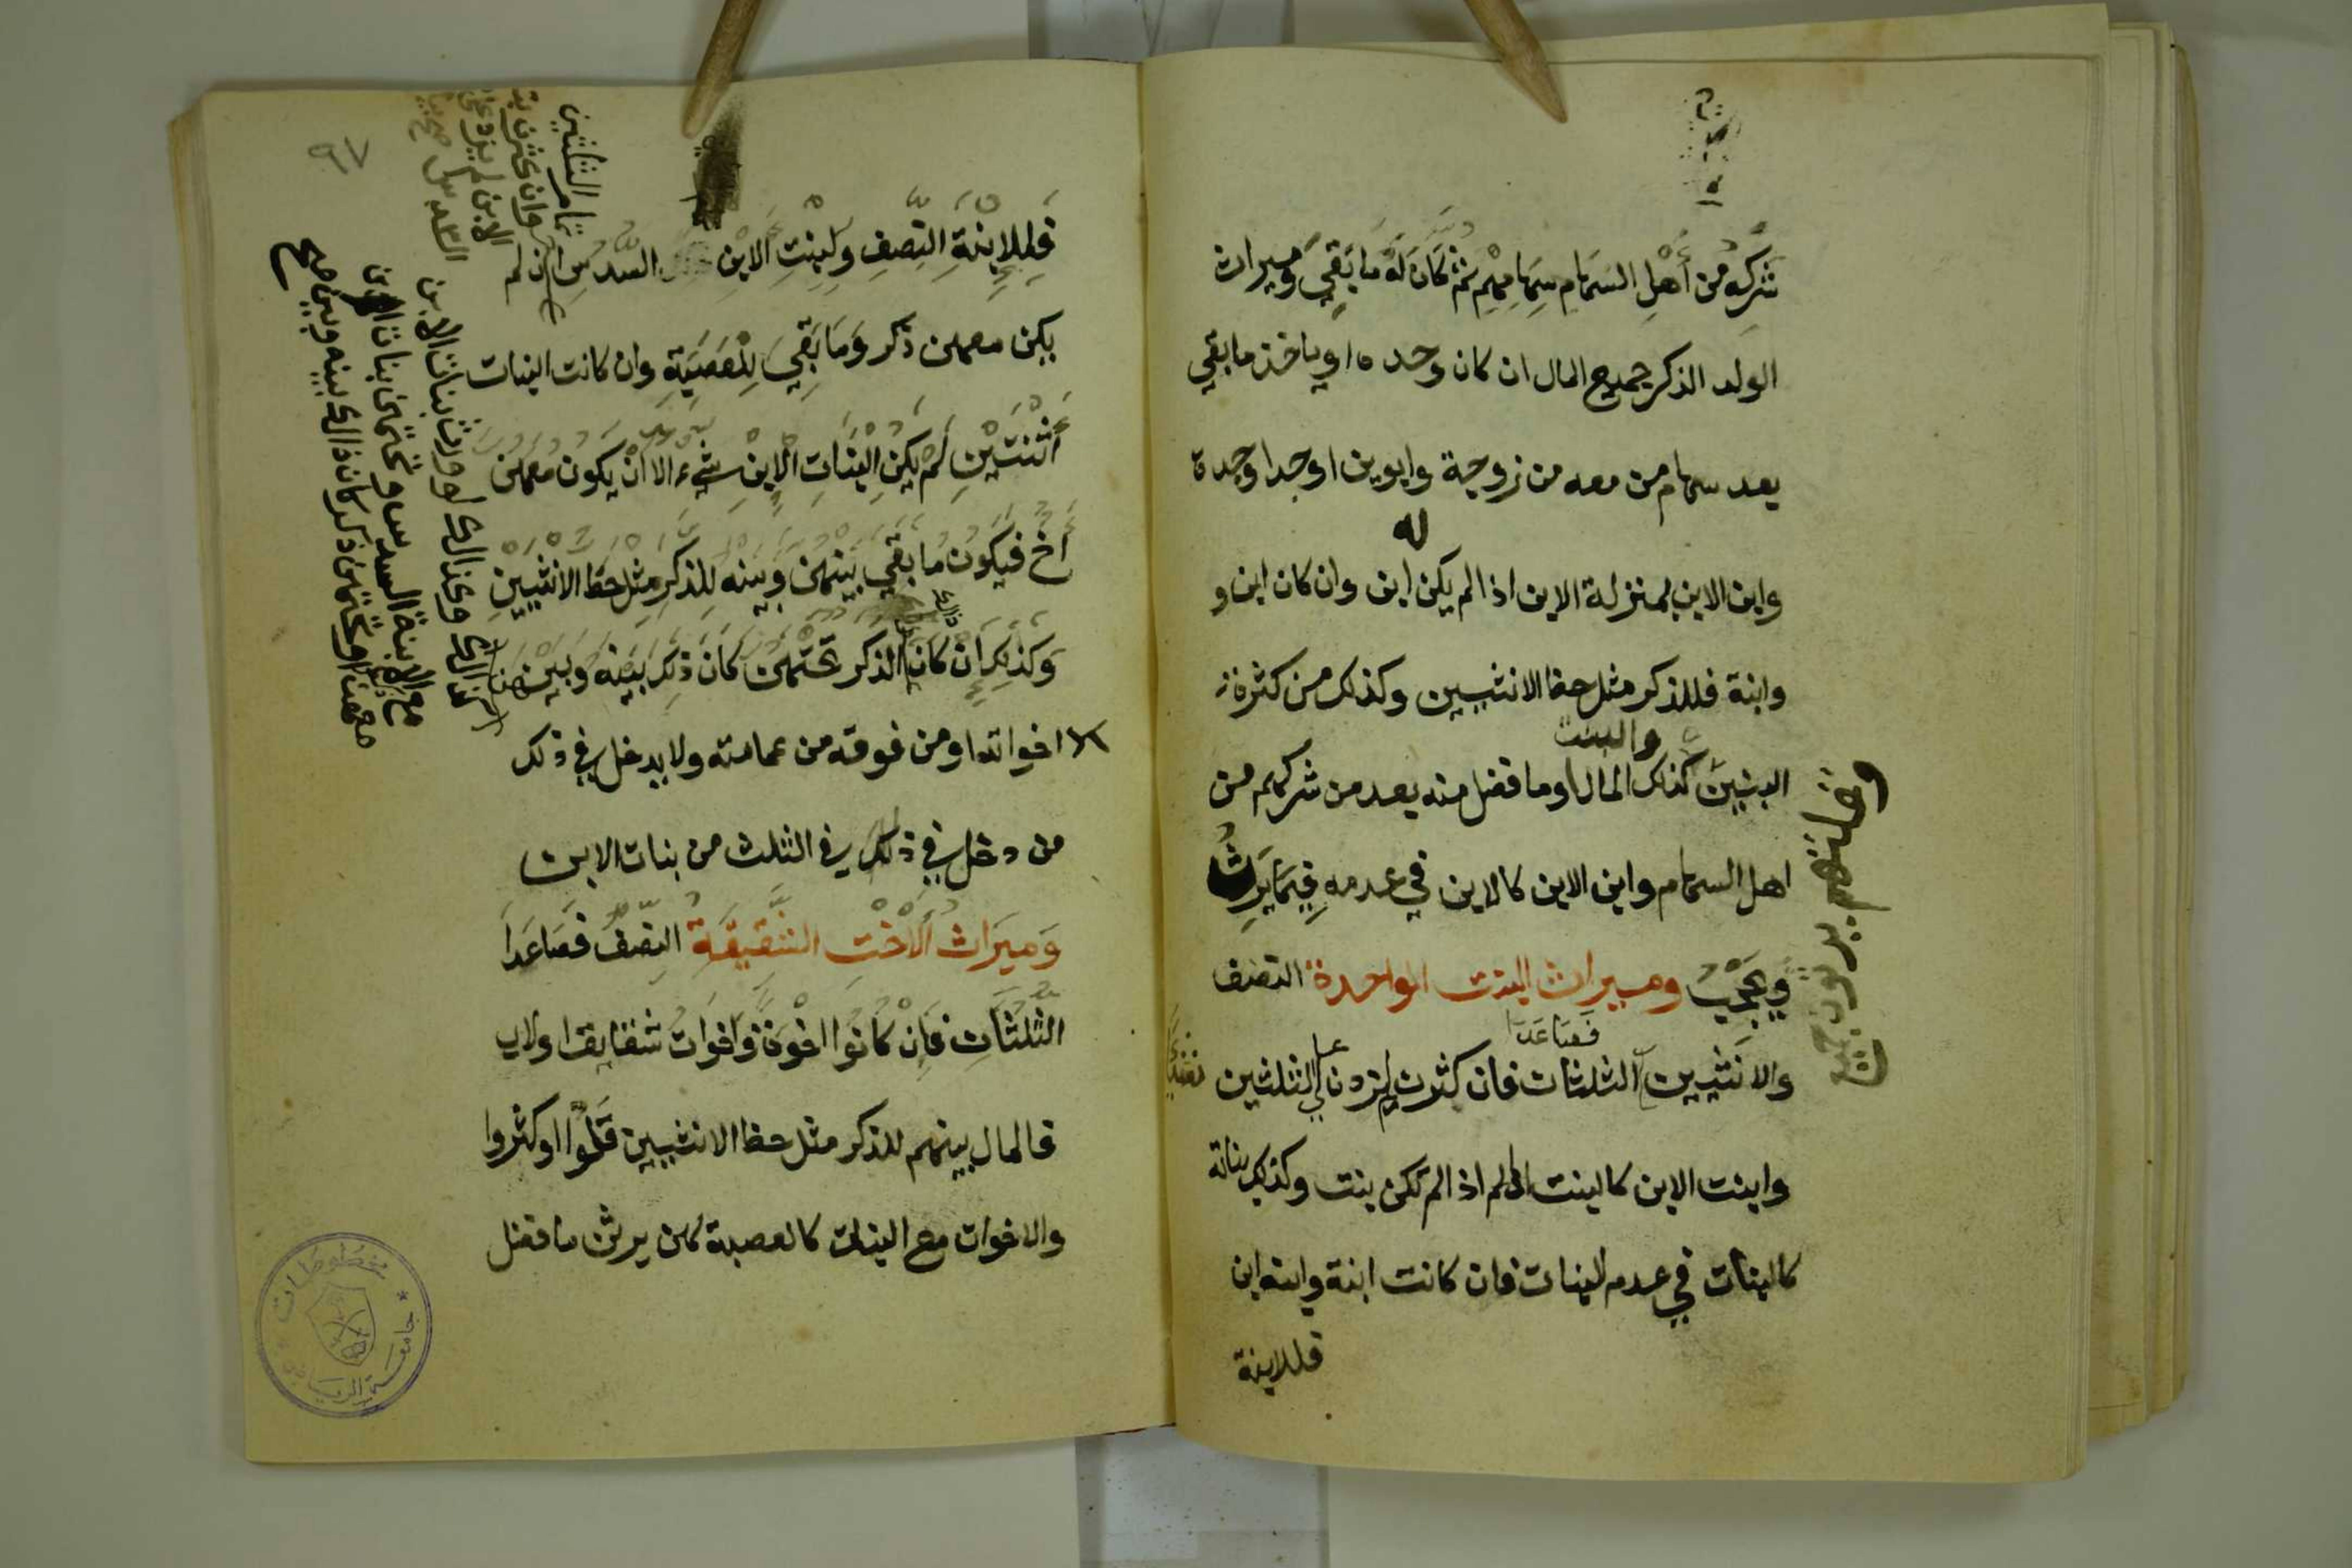 شركه من أهل السهام سهامهم ثم كان له ما بقي وميراث
الولد الذكر جميع المال ان كان وحده او ياخذ ما بقي
بعد سهام من معه من زوجة وابوين او جد او جدة
له
وابن الابن بمنزلة الابن اذا لم يكن ابن وان كان ابن و
وابنة فللذكر مثل حظ الانثيين وكذلك من كثرة
والبنت
البنين كذلك المال او ما فضل منه بعد من شركهم من
اهل السهام وابن الابن كالابن في عدمه فيما يرث
ويحجب وميراث البنت الواحدة النصف
فصاعدا
والانثيين الثلثات فان كثرت لم تزدن على الثلثين
وابنت الابن كالبنت اذا لم تكن بنت وكذلك بناته
كالبنات في عدم البنات فان كانت ابنة وابنة ابن
فللابنة
٩٧
فللابنة النصف ولبنت الابن السدس ان لم
يكن معهن ذكر وما بقي للعصبة وان كانت البنات
أثنتين لم يكن البنات الابن شيء الا ان يكون معهن
أخ فيكون ما بقي بينهن وبينه للذكر مثل حظ الانثيين
وكذلك ان كان الذكر تحتهن كان ذلك بينه وبينهن
تمام الثلثين
وان كثرن
الابن لم يزد على
السدس
لو ورث بنات الابن
مع الابنة السدس وتحتهن بنات
معهن او تحتهن ذكر كان ذالك بينه وبين
اخواته او من فوقه من عماته ولا يدخل في ذلك
من دخل في ذلك في الثلث من بنات الابن
وميراث ألاخت الشقيقة النصف فصاعدا
الثلثات فان كانوا اخوة واخوات شقايقا او لاب
فالمال بينهم للذكر مثل حظ الانثيين قلوا او كثروا
والاخوات مع البنات كالعصبة لهن يرثن ما فضل
مخطوطات
جامعة الرياض